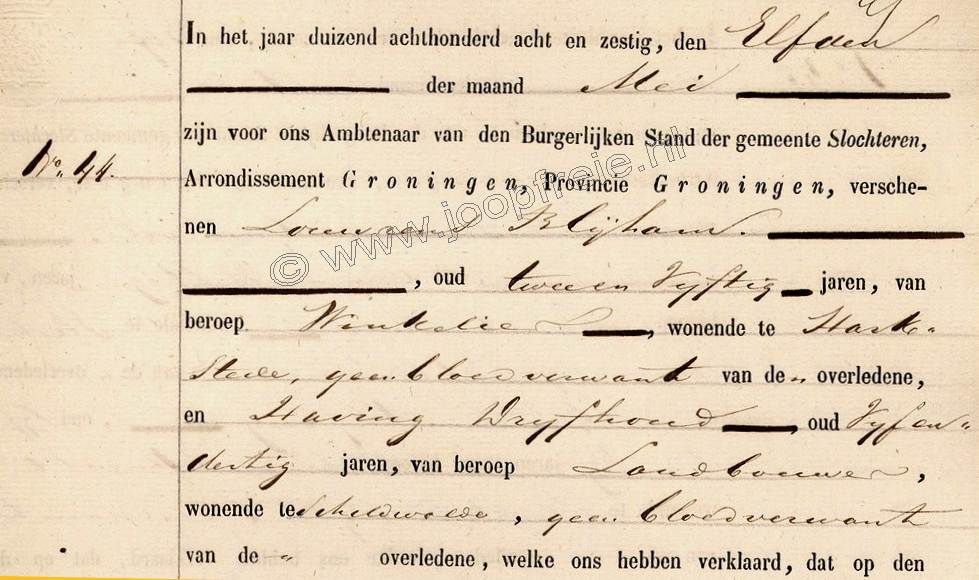 In het jaar duizend achthonderd acht en zestig, den Elfden
der maand Mei
zijn voor ons Ambtenaar van den Burgerlijken Stand der gemeente Slochteren,
No. 44.
Arrondissement Groningen, Provincie Groningen, versche-
nen Louwrens Blijham.
, oud twee en Vyftig jaren, van
beroep Winkelier, wonende te Hark-
stede, geen bloedverwant van den overledene,
en Having Dryfhoud oud Vyf en
dertig jaren, van beroep Landbouwer,
wonende te Schildwolde, geen bloedverwant
van de " overledene, welke ons hebben verklaard, dat op den
© www.joopfreje.nl